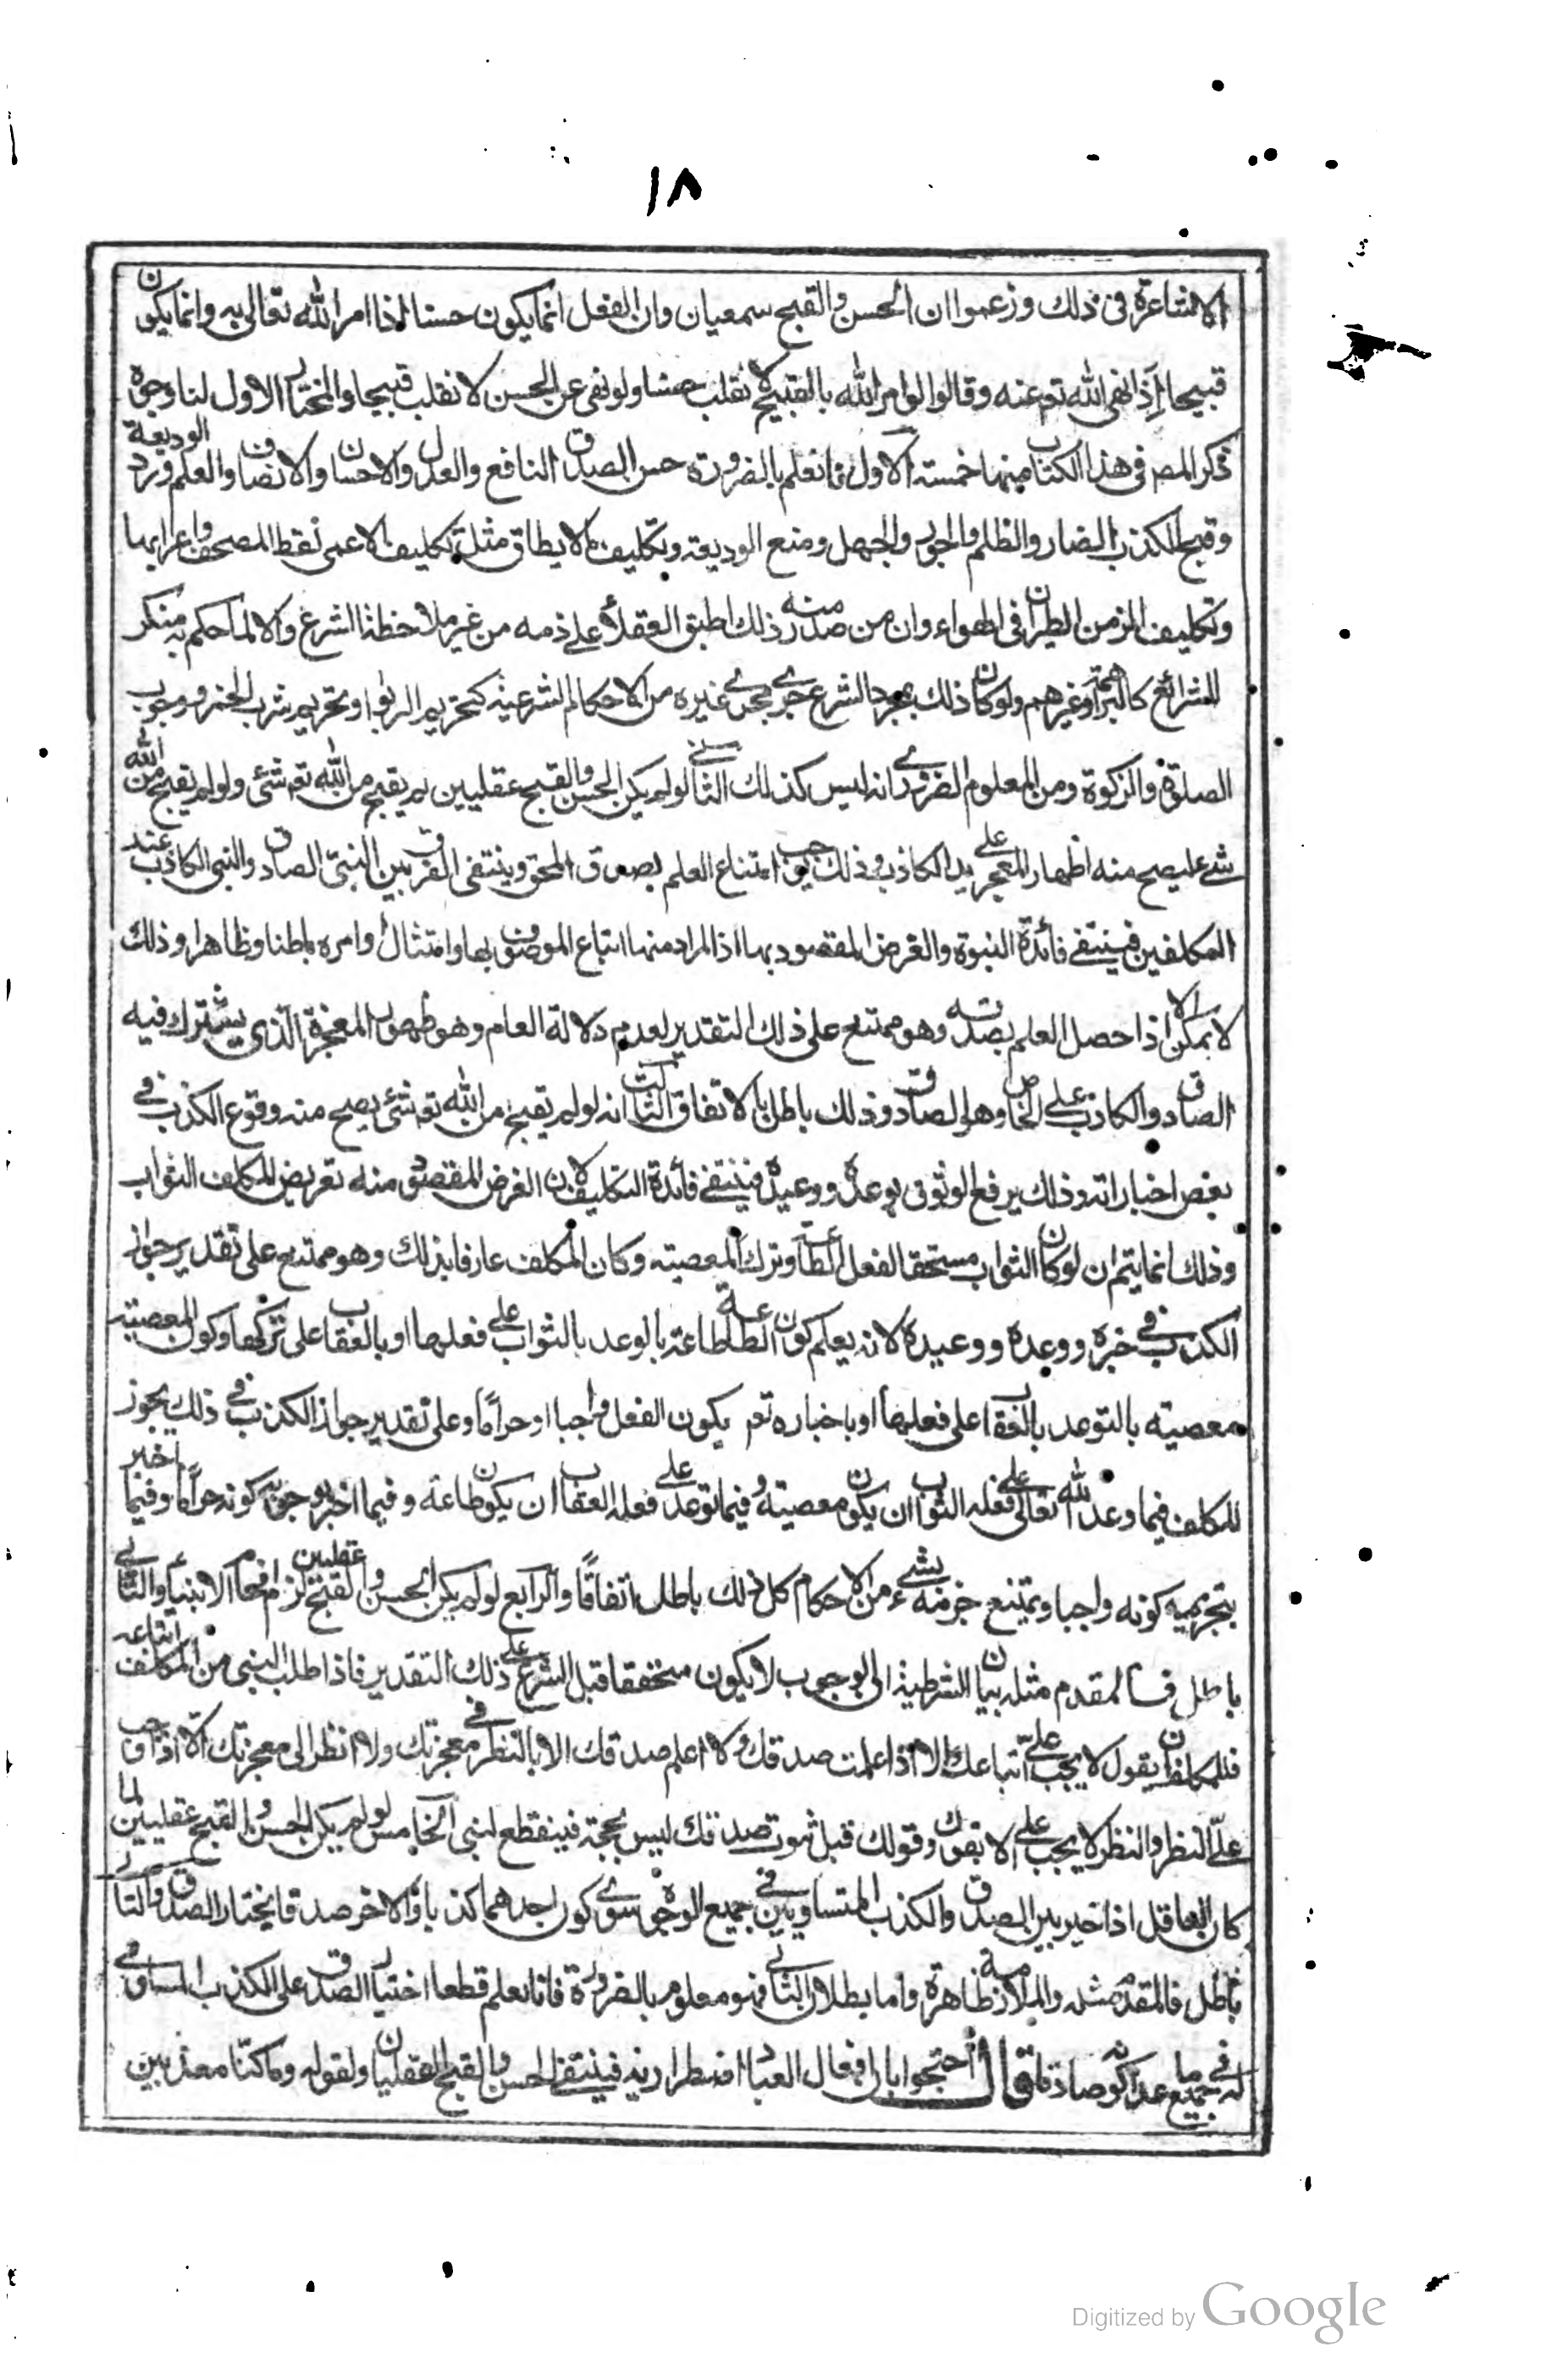 ١٨
الاشاعرة فى ذلك وزعموا ان الحسن والقبح سمعيان وان الفعل انما يكون حسنا اذا امر الله تعالى به وانما يكون
قبيحا اذا نهى الله تعم عنه وقالوا لو امر الله بالقبيح لا نقلب حسنا ولو نهى عن الحسن لا نقلب قبيحا والمختار الاول لنا وجوه
ذكر المصـ فى هذا الكتاب منها خمسة الاول انا نعلم بالضرورة حسن الصدق النافع والعدل والاحسان والانصاف والعلم ورد الوديعة
وقبح الكذب الضار والظلم والجور والجهل ومنع الوديعة وتكليف ما لا يطاق مثل تكليف الاعمى نقط المصحف واعرابها
وتكليف الزمن الطيران فى الهواء وان من صدر منه ذلك اطبق العقلاء على ذمه من غير ملاحظة الشرع والا لما حكم به منكر
الشرائع كالبراهمة وغيرهم ولو كان ذلك بمجرد الشرع جرى مجرى غيره من الاحكام الشرعية كتحريم الربوا وتحريم شرب الخمر ووجوب
الصلوة والزكوة ومن المعلوم الضرورى انه ليس كذلك الثانى لو لم يكن الحسن والقبح عقليين لم يقبح من الله تعم شئ ولو لم يقبح من الله
شئ لصح منه اظهار المعجز على يد الكاذب وذلك يوجب امتناع العلم بصدق المحق وينتفى الفرق بين النبى الصادق والنبى الكاذب عند
المكلفين فينتفى فائدة النبوة والغرض المقصود بها اذ المراد منها اتباع الموصوف بها وامتثال اوامره باطنا وظاهرا وذلك
لا يمكن الا اذا حصل العلم بصدقه وهو ممتنع على ذلك التقدير لعدم دلالة العام وهو ظهور المعجزة الذى يشترك فيه
الصادق والكاذب على الخاص وهو الصادق وذلك باطل بالاتفاق الثالث انه لو لم يقبح من الله تعم شئ يصح منه وقوع الكذب فى
بعض اخباراته وذلك يرفع الوثوق بوعده ووعيده فينتفى فائدة التكليف لان الغرض المقصود منه تعريض المكلف الثواب
وذلك انما يتم ان لو كان الثواب مستحقا لفعل الطاعة وترك المعصية وكان المكلف عارفا بذلك وهو ممتنع على تقدير جواز
الكذب فى خبره ووعده ووعيده لانه يعلم كون الطاعة طاعة بالوعد بالثواب على فعلها او بالعقاب على تركها وكون المعصية
معصية بالتوعد بالعقاب على فعلها او باخباره تعم يكون الفعل واجبا او حراما وعلى تقدير جواز الكذب فى ذلك يجوز
للمكلف فيما وعد الله تعالى على فعله الثواب ان يكون معصية وفيما توعد على فعله العقاب ان يكون طاعة وفيما اخبر بوجوبه كونه حراما وفيما اخبر
بتحريمه كونه واجبا ويمتنع جزمه بشئ من الاحكام كل ذلك باطل اتفاقا والرابع لو لم يكن الحسن والقبح عقليين لزم افحام الانبياء والتالى
باطل فالمقدم مثله بيان الشرطية ان الوجوب لا يكون متحققا قبل الشرع على ذلك التقدير فاذا طلب النبى من المكلف اتباعه
فللمكلف ان يقول لا يجب على اتباعك الا اذا علمت صدقك ولا اعلم صدقك الا بالنظر فى معجزتك ولا انظر الى معجزتك الا اذا وجب
على النظر والنظر لا يجب على الا بقولك وقولك قبل ثبوت صدقك ليس بحجة فينقطع النبى الخامس لو لم يكن الحسن والقبح عقليين لما
كان العاقل اذا خير بين الصدق والكذب المتساويين فى جميع الوجوه سوى كون احدهما كذبا والاخر صدقا يختار الصدق والتالى
باطل فالمقدم مثله والملازمة ظاهرة واما بطلان التالى فهو معلوم بالضرورة فانا نعلم قطعا اختيار الصدق على الكذب المساوى
له فى جميع ما عدا كونه صادقا قال احتجوا بان افعال العباد اضطرارية فينتفى الحسن والقبح العقليان ولقوله وما كنا معذبين
Digitized by Google